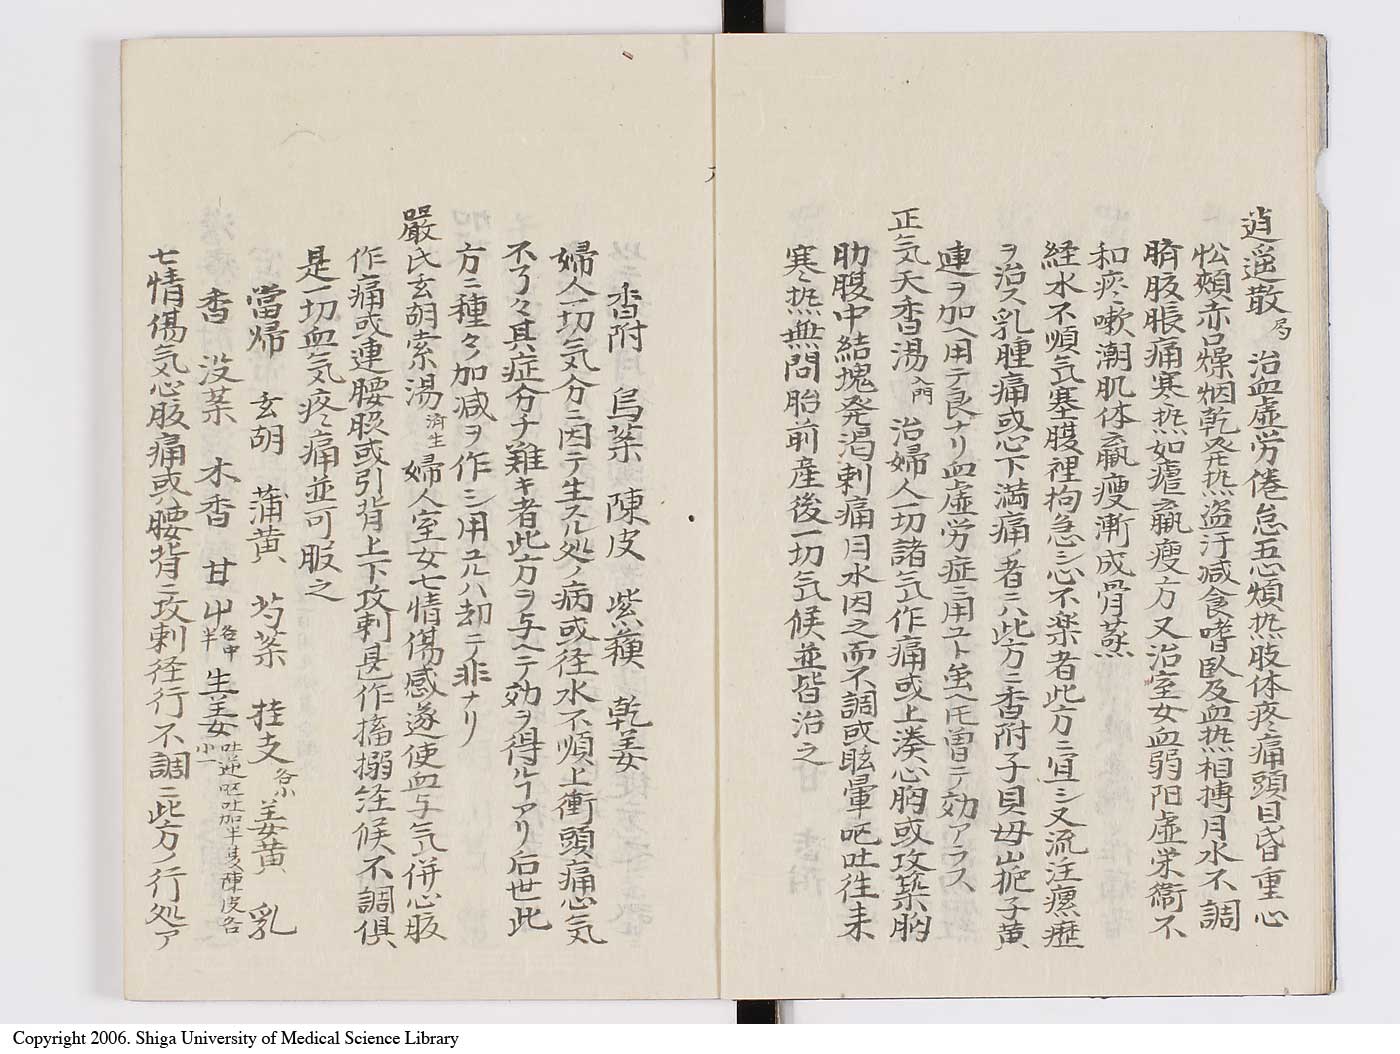 逍遥散局 治血虚労倦怠五心煩热肢体疼痛頭目昏重心
忪頬赤口燥烟乾発热盗汗减食嗜臥及血热相搏月水不調
臍腹脹痛寒热如瘧羸痩方又治室女血弱阳虚栄衛不
和痰嗽潮肌体羸痩漸成骨蒸
経水不順气塞腹裡拘急シ心不楽者此方ニ宜シ又流注瘰癧
ヲ治ス乳腫痛或心下満痛ノ者ニハ此方ニ香附子貝母山扼子黄
連ヲ加ヘ用テ良ナリ血虚労症ニ用ユト虽ヘ𪜈曽テ効アラス
正气天香湯入門 治婦人一切諸气作痛或上湊心胸或攻築胸
肋腹中結塊発渇刺痛月水因之而不調或眩暈呕吐往来
寒热無問胎前産後一切气候並皆治之
香附 烏薬 陳皮 紫蘓 乾姜
婦人一切気分ニ因テ生スル処ノ病或径水不順上衝頭痛心気
不了々其症分チ難キ者此方ヲ与ヘテ効ヲ得ルヿアリ后世此
方ニ種々ノ加减ヲ作シ用ユルハ却テ非ナリ
嚴氏玄胡索湯済生 婦人室女七情傷感遂使血与気併心腹
作痛或連腰脇或引背上下攻刺甚作搐搦経候不調俱
是一切血気疼痛並可服之
當帰 玄胡 蒲黄 芍薬 桂支各小 姜黄 乳
香 没薬 木香 甘屮各中半 生姜小一 吐逆呕吐加半夏陳皮各
七情傷気心腹痛或腰背ニ攻刺径行不調ニ此方ノ行処ア
Copyright 2006. Shiga University of Medical Science Library